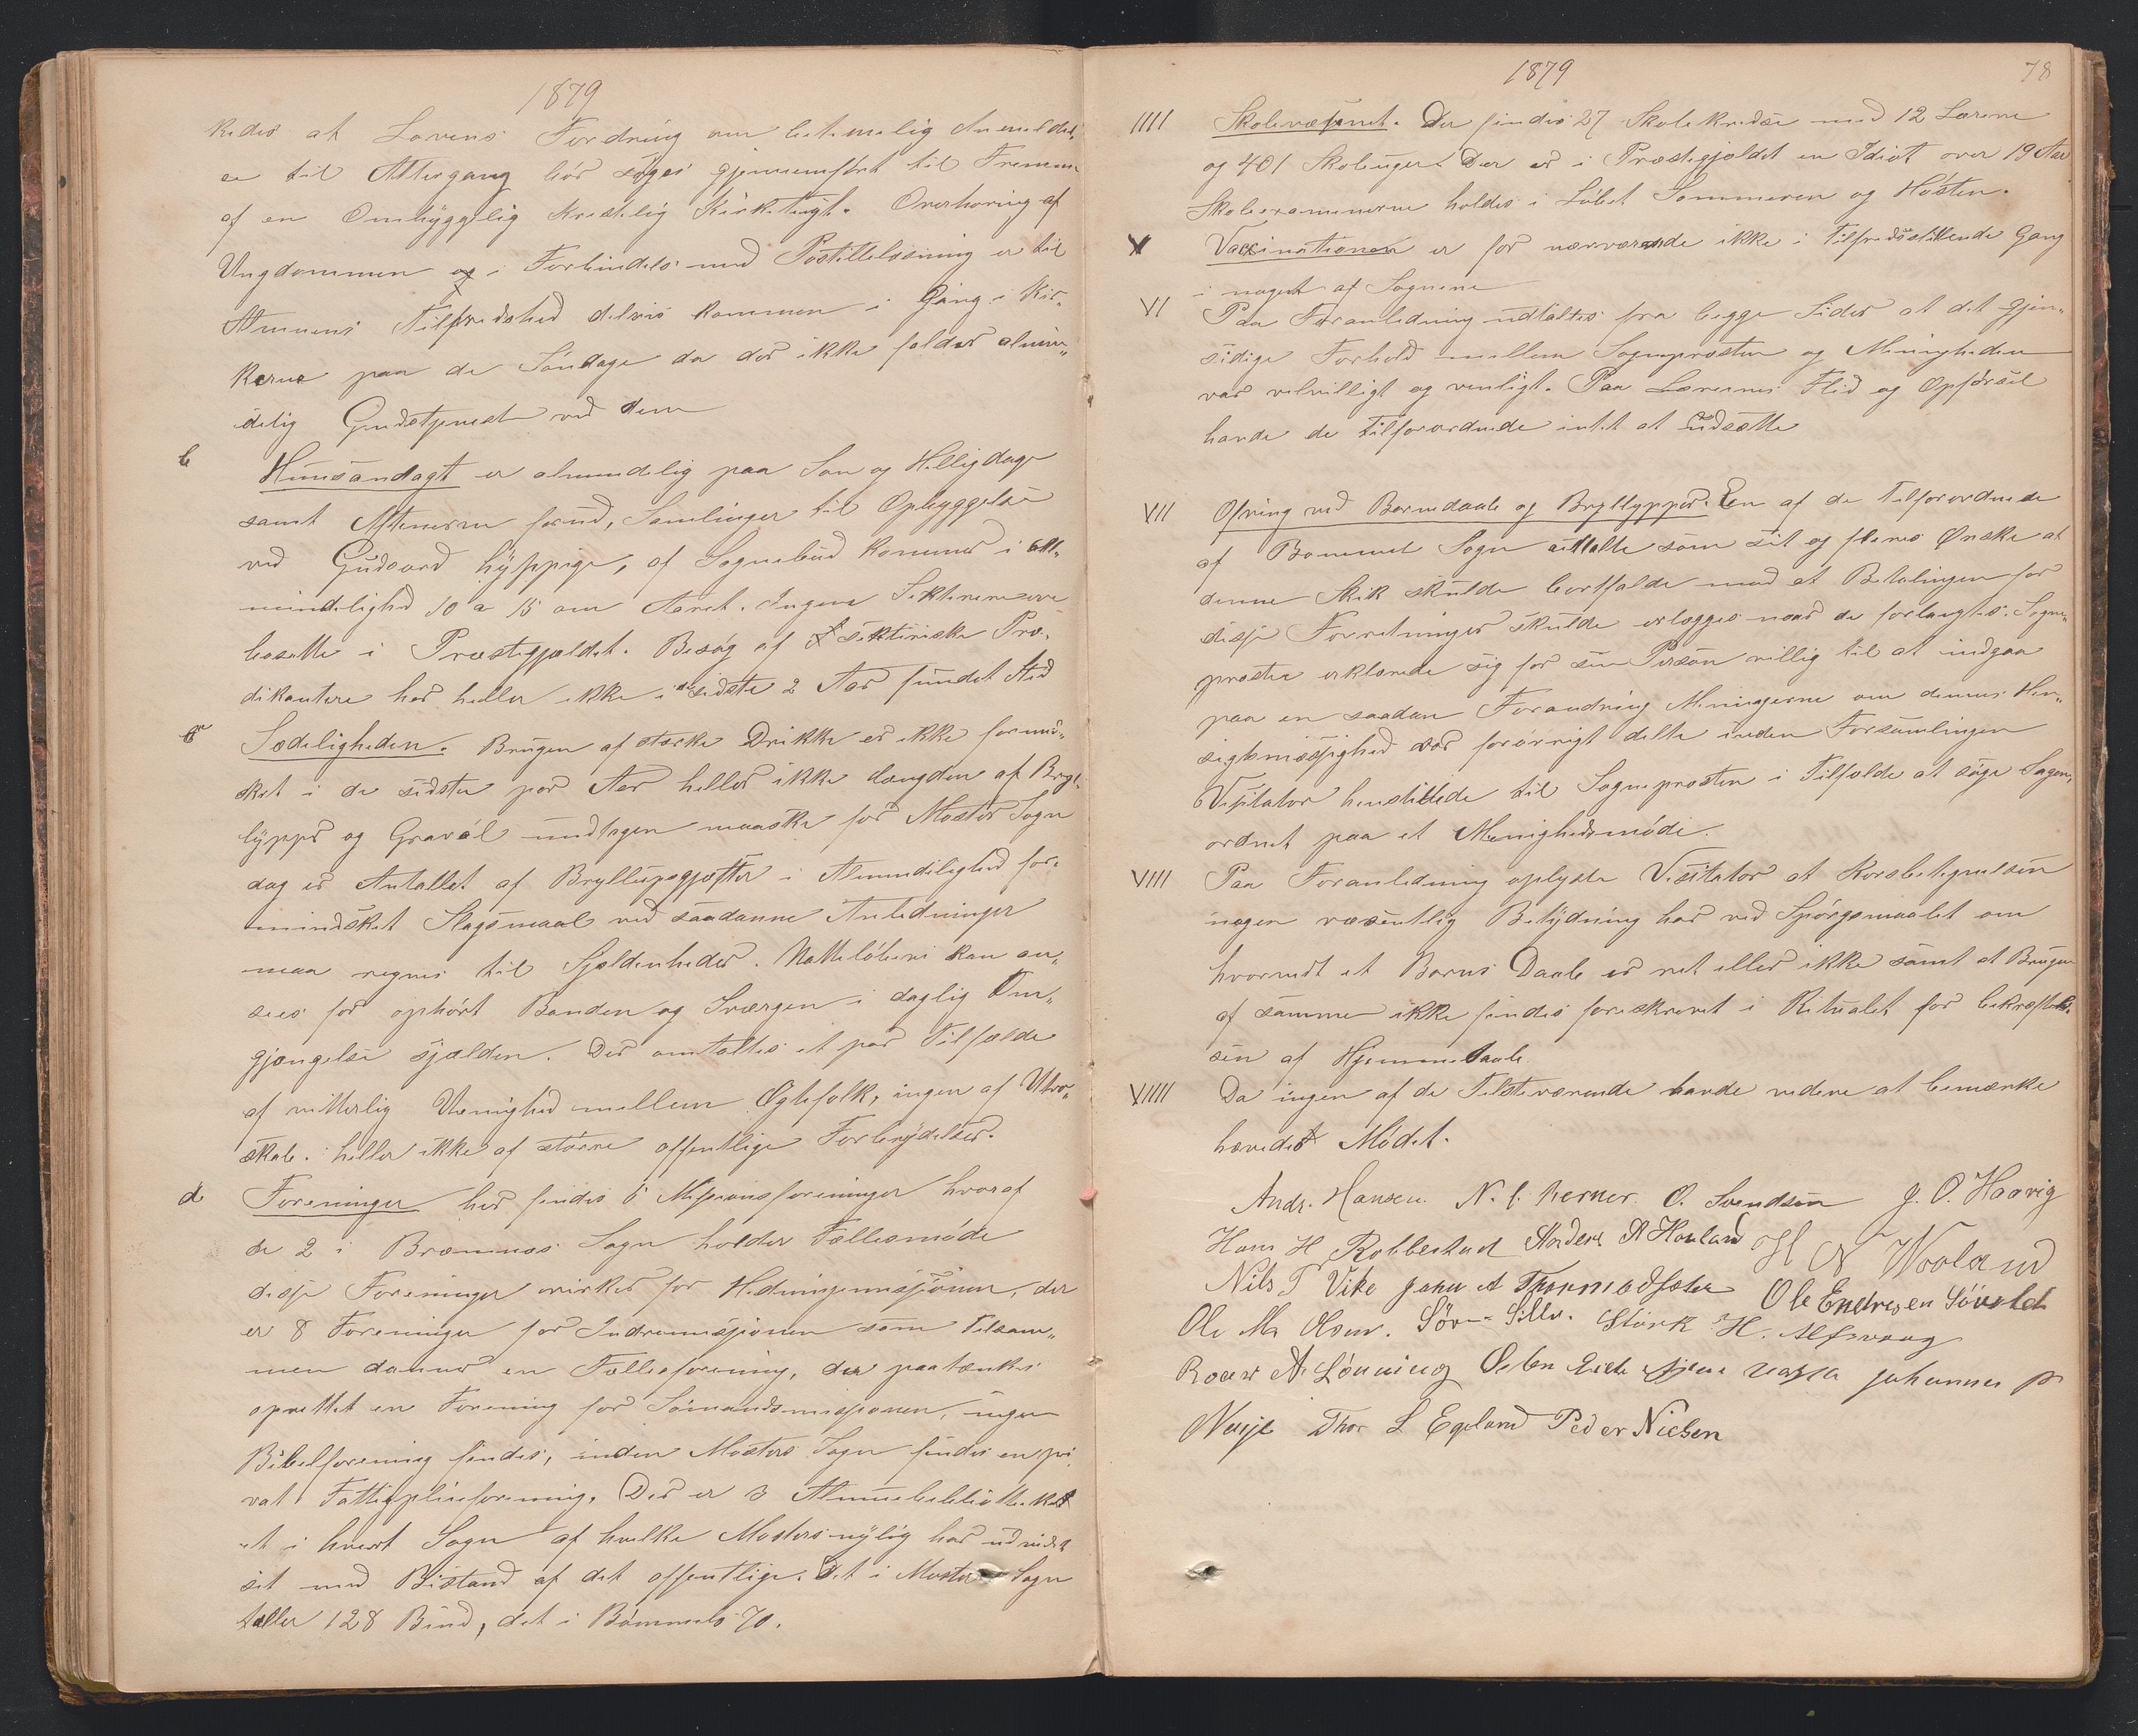 1879
kedes at Lovens Fordring om betimelig Anmeldel„
se til Altergang bör söges gjennemfört til Fremme
af en Omhyggelig kristelig Kirketugt. Overhøring af
Ungdommen og i Forbindelse med Postillelæsning er til
Almuens Tilfredshed delvis kommen i Gang i Kir„
kerne paa de Söndage da der ikke falder almin„
delig Gudstjeneste ved dem
b Husandagt er almindelig paa Søn og Helligdage
samt Aftenerne forud, Samlinger til Opbyggelse
ved Guds ord hyppige, af Sognebud kommer i Al„
mindelighed 10 a 15 om Aaret. Ingen Sekterere ere
bosatte i Præstegjældet. Besög af sekteriske Præ„
dikantere har heller ikke i de sidste 2 Aar fundet Sted
c Sædeligheden. Brugen af stærke Drikke er ikke formind„
sket i de sidste par Aar heller ikke Længden af Bryl„
lypper og Gravöl undtagen maaske for Mosters Sogn
dog er Antallet af Bryllupsgjæster i Almindelighed for„
mindsket Slagsmaal ved saadanne Anledninger
maa regnes til Sjældenheder. Natteløberi kan an„
sees for ophørt Banden og Sværgen i daglig Om„
gjængelse sjælden. Der omtaltes et par Tilfælde
af vitterlig Uenighed mellem Ægtefolk, ingen af Utro„
skab. heller ikke af större offentlige Forbrydelser.
d Foreninger her findes 6 Missionsforeninger hvoraf
de 2 i Bremnes Sogn holder Fællesmöde
disse Foreninger virker for Hedningemissionen, der
er 8 Foreninger for Indremissionen som tilsam„
men danner en Fællesforening, der paatænkes
oprettet en Forening for Sömandsmissionen, ingen
Bibelforening findes, inden Mosters Sogn findes en pri
vat Fattigpleieforening. Der er 3 Almuebibliotheker
et i hvert Sogn af hvilke Mosters nylig har udvidet
sit med Bistand af det offentlige. Det i Mosters Sogn
tæller 128 Bind, det i Bömmels 70.
1879 78
IIII Skolevæsenet. Der findes 27 Skolekredse med 12 Lærere
og 401 Skoleuger Der er i Præstegjældet en Idiot over 19 Aar
Skoleexamenerne holdes i Löbet Sommeren og Hösten.
V Vaccinationen er for nærværende ikke i tilfredsstillende Gang
i noget af Sognene
VI Paa Foranledning udtaltes fra begge Sider at det gjen„
sidige Forhold mellem Sognepræsten og Menigheden
var velvilligt og venligt. Paa Lærernes Flid og Opförsel
havde de tilforordnede intet at udsætte
VII Ofring ved Barnedaab og Bryllypper. En af de Tilforordnede
af Bommel Sogn udtalte som sit og fleres Ønske at
denne Skik skulde bortfalde mod at Betalingen for
disse Forretninger skulde erlægges naar de forlangtes. Sogne„
præsten erklærede sig for sin Person villig til at indgaa
paa en saadan Forandring Meningerne om dennes Hen„
sigtsmæssighed var forövrigt delte inden Forsamlingen
Visitator henstillede til Sognepræsten i Tilfælde at söge Sagen
ordnet paa et Menighedsmöde.
VIII Paa Foranledning oplyste Visitator at Korsbetegnelsen
nogen væsentlig Betydning har ved Spörgsmaalet om
hvorvidt et Barns Daab er ret eller ikke samt at Brugen
af samme ikke findes foreskrevet i Ritualet for bekræftel„
sen af Hjemmedaab.
VIIII Da ingen af de Tilstedværende havde videre at bemærke
hævedes Mödet.
Andr. Hansen. N. C. Verner. O. Svendsen J. O. Haavig
Hans H Robbestad Anders A Hovland H N Vooland
Nils T Vike John A Thormodsæter Ole Endresen Sövold
Ole M. Olsen. Størk H. Alfsvaag
Roar A Lönning Johannes P
Nesse Thor L Egeland Peder Nielsen